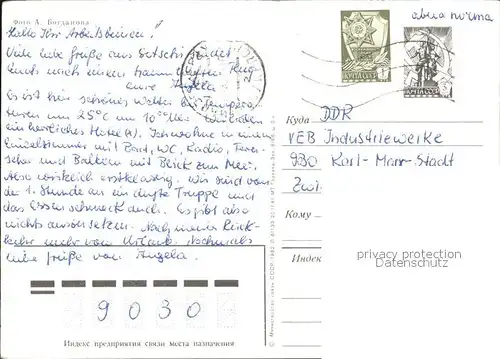 Фото А. Богданова
авиапочта
Hallo Ihr Arbeitsbienen!
Viele liebe Grüße aus Sotschi sendet
Euch nach einem traumhaften Flug
eure Angela
Es ist hier schönes Wetter bei Tempera-
turen um 25°C um 10
ein herrliches Hotel(x). Ich wohne in einem
Einzelzimmer mit Bad, WC, Radio, Fern-
seher und Balkon mit Blick zum Meer.
Also wirklich erstklassig. Wir sind von
der 1. Stunde an ein dufte Truppe und
das Essen schmeckt auch. Es gibt also
nichts auszusetzen. Nach meiner Rück-
kehr mehr vom Urlaub. Nochmals
liebe Grüße von Angela.
Куда
DDR
VEB Industriewerke
930 Karl-Marx-Stadt
Кому
Индек
privacy protection
Datenschutz
9030
Индекс предприятия связи места назначения